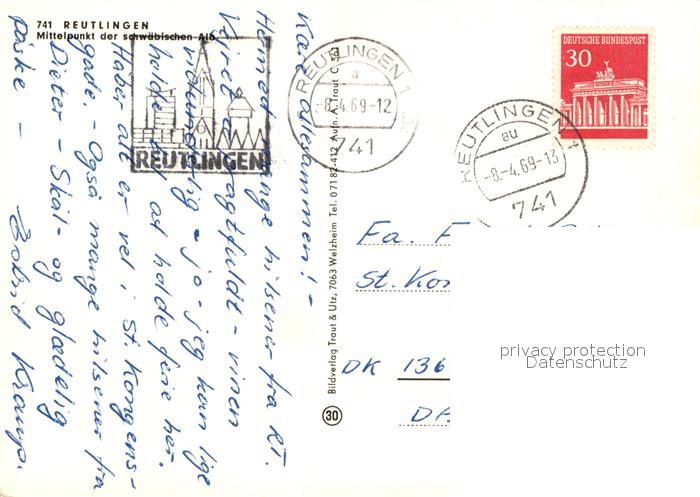 741 REUTLINGEN
Mittelpunkt der schwäbischen Alb
Kære allesammen! -
Hermed mange hilsener fra RT.
Vejret er pragtfuldt - vinen
vidunderlig - jo - jeg kan lige
holde ud at holde ferie her.
Håber alt er vel i St. Kongens-
gade. - Også mange hilsener fra
Dieter - Skål - og glædelig
påske -
REUTLINGEN
REUTLINGEN 1
a
-8.4.69-12
741
REUTLINGEN 1
au
-8.-4.69-13
741
DEUTSCHE BUNDESPOST
30
Bildverlag Traut & Utz, 7063 Welzheim Tel. 071 82-412
30
Fa. F
St. Kon
DK 136
DÄ
privacy protection
Datenschutz